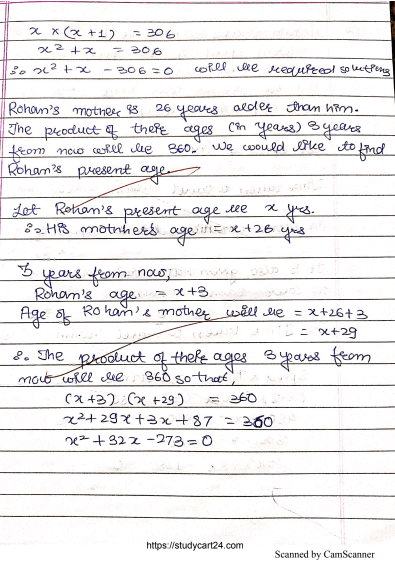 x × (x + 1) = 306
x² + x = 306
∴ x² + x - 306 = 0 will be required solutions
Rohan's mother is 26 years older than him.
The product of their ages (in years) 3 years
from now will be 360. We would like to find
Rohan's present age.
Let Rohan's present age be x yrs.
∴ His motnher's age = x + 26 yrs
3 years from now,
Roham's age = x + 3
Age of Rohan's mother will be = x + 26 + 3
= x + 29
∴ The product of their ages 3 years from
now will be 360 so that,
(x + 3) (x + 29) = 360
x² + 29x + 3x + 87 = 360
x² + 32x - 273 = 0
https://studycart24.com
Scanned by CamScanner